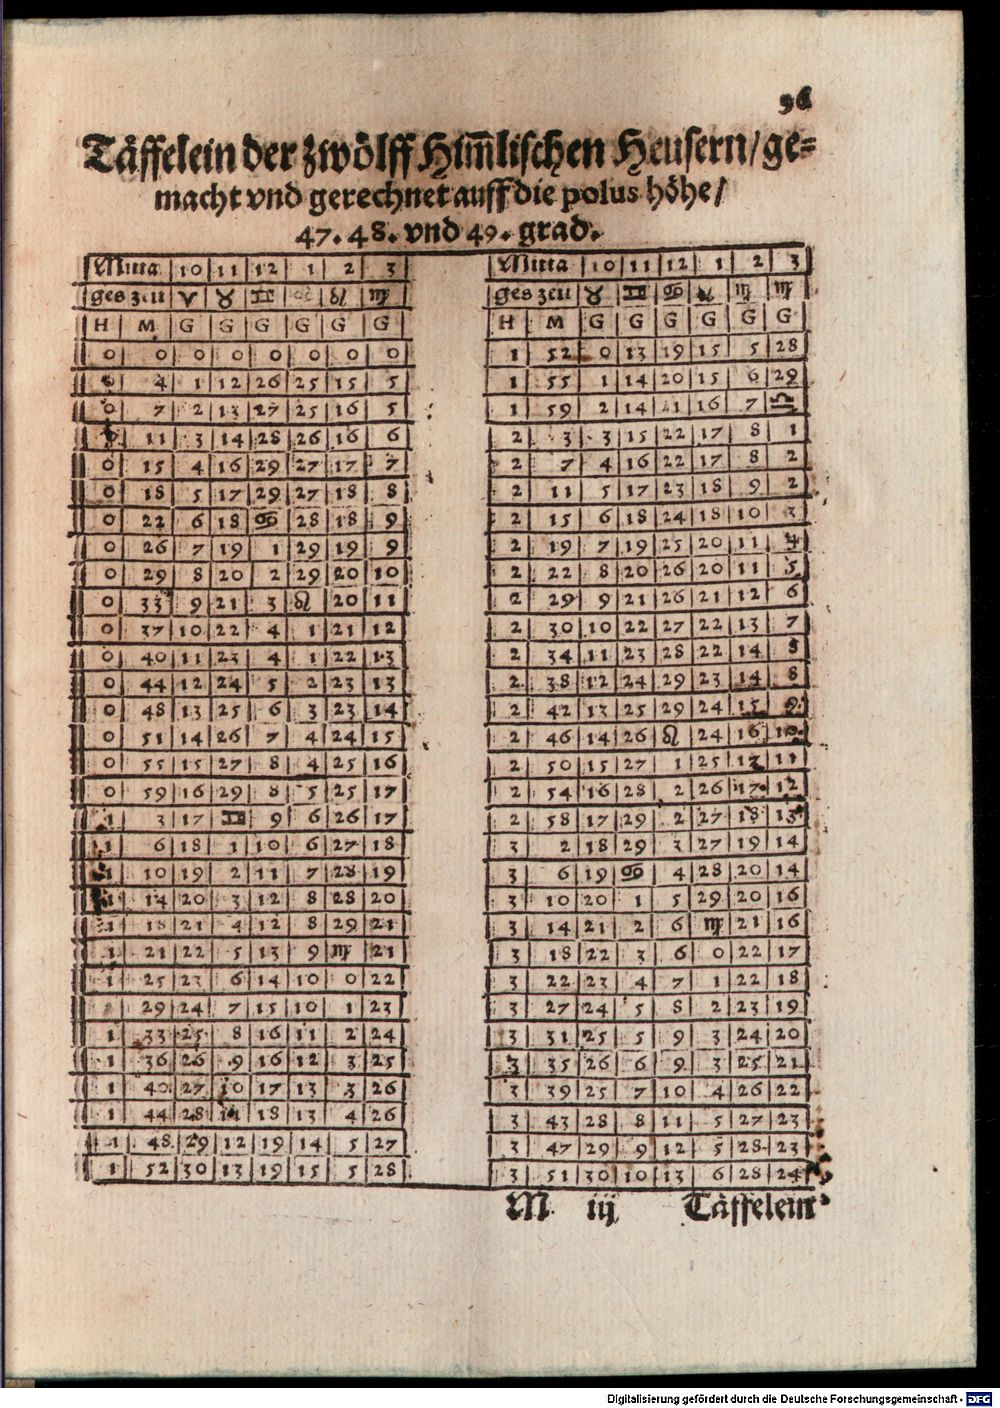 96
Täffelein der zwölff Him̄lischen Heusern/ge=
macht vnd gerechnet auff die polus höhe/
47. 48. vnd 49. grad.
Mitta 10 11 12 1 2 3
ges zeit ♈ ♉ ♊ ♋ ♌ ♍
H M G G G G G G
0 0 0 0 0 0 0 0
0 4 1 12 26 25 15 5
0 7 2 13 27 25 16 5
11 3 14 28 26 16 6
0 15 4 16 29 27 17 7
0 18 5 17 29 27 18 8
0 22 6 18 ♋ 28 18 9
0 26 7 19 1 29 19 9
0 29 8 20 2 29 20 10
0 33 9 21 3 ♌ 20 11
0 37 10 22 4 1 21 12
0 40 11 23 4 1 22 13
0 44 12 24 5 2 23 13
0 48 13 25 6 3 23 14
0 51 14 26 7 4 24 15
0 55 15 27 8 4 25 16
0 59 16 29 8 5 25 17
1 3 17 ♊ 9 6 26 17
1 6 18 1 10 6 27 18
1 10 19 2 11 7 28 19
1 14 20 3 12 8 28 20
1 18 21 4 12 8 29 21
1 21 22 5 13 9 ♍ 21
1 25 23 6 14 10 0 22
29 24 7 15 10 1 23
1 33 25 8 16 11 2 24
1 36 26 9 16 12 3 25
1 40 27 10 17 13 3 26
1 44 28 11 18 13 4 26
1 48 29 12 19 14 5 27
1 52 30 13 19 15 5 28
Mitta 10 11 12 1 2 3
ges zeit ♉ ♊ ♋ ♌ ♍ ♍
H M G G G G G G
1 52 0 13 19 15 5 28
1 55 1 14 20 15 6 29
1 59 2 14 21 16 7 ♎
2 3 3 15 22 17 8 1
2 7 4 16 22 17 8 2
2 11 5 17 23 18 9 2
2 15 6 18 24 18 10 3
2 19 7 19 25 20 11 4
2 22 8 20 26 20 11 5
2 29 9 21 26 21 12 6
2 30 10 22 27 22 13 7
2 34 11 23 28 22 14 8
2 38 12 24 29 23 14 8
2 42 13 25 29 24 15 9
2 46 14 26 ♌ 24 16 10
2 50 15 27 1 25 17 11
2 54 16 28 2 26 17 12
2 58 17 29 2 27 18 13
3 2 18 29 3 27 19 14
3 6 19 ♋ 4 28 20 14
3 10 20 1 5 29 20 16
3 14 21 2 6 ♍ 21 16
3 18 22 3 6 0 22 17
3 22 23 4 7 1 22 18
3 27 24 5 8 2 23 19
3 31 25 5 9 3 24 20
3 35 26 6 9 3 25 21
3 39 25 7 10 4 26 22
3 43 28 8 11 5 27 23
3 47 29 9 12 5 28 23
3 51 30 10 13 6 28 24
M iij Täffelein
Digitalisierung gefördert durch die Deutsche Forschungsgemeinschaft - DFG